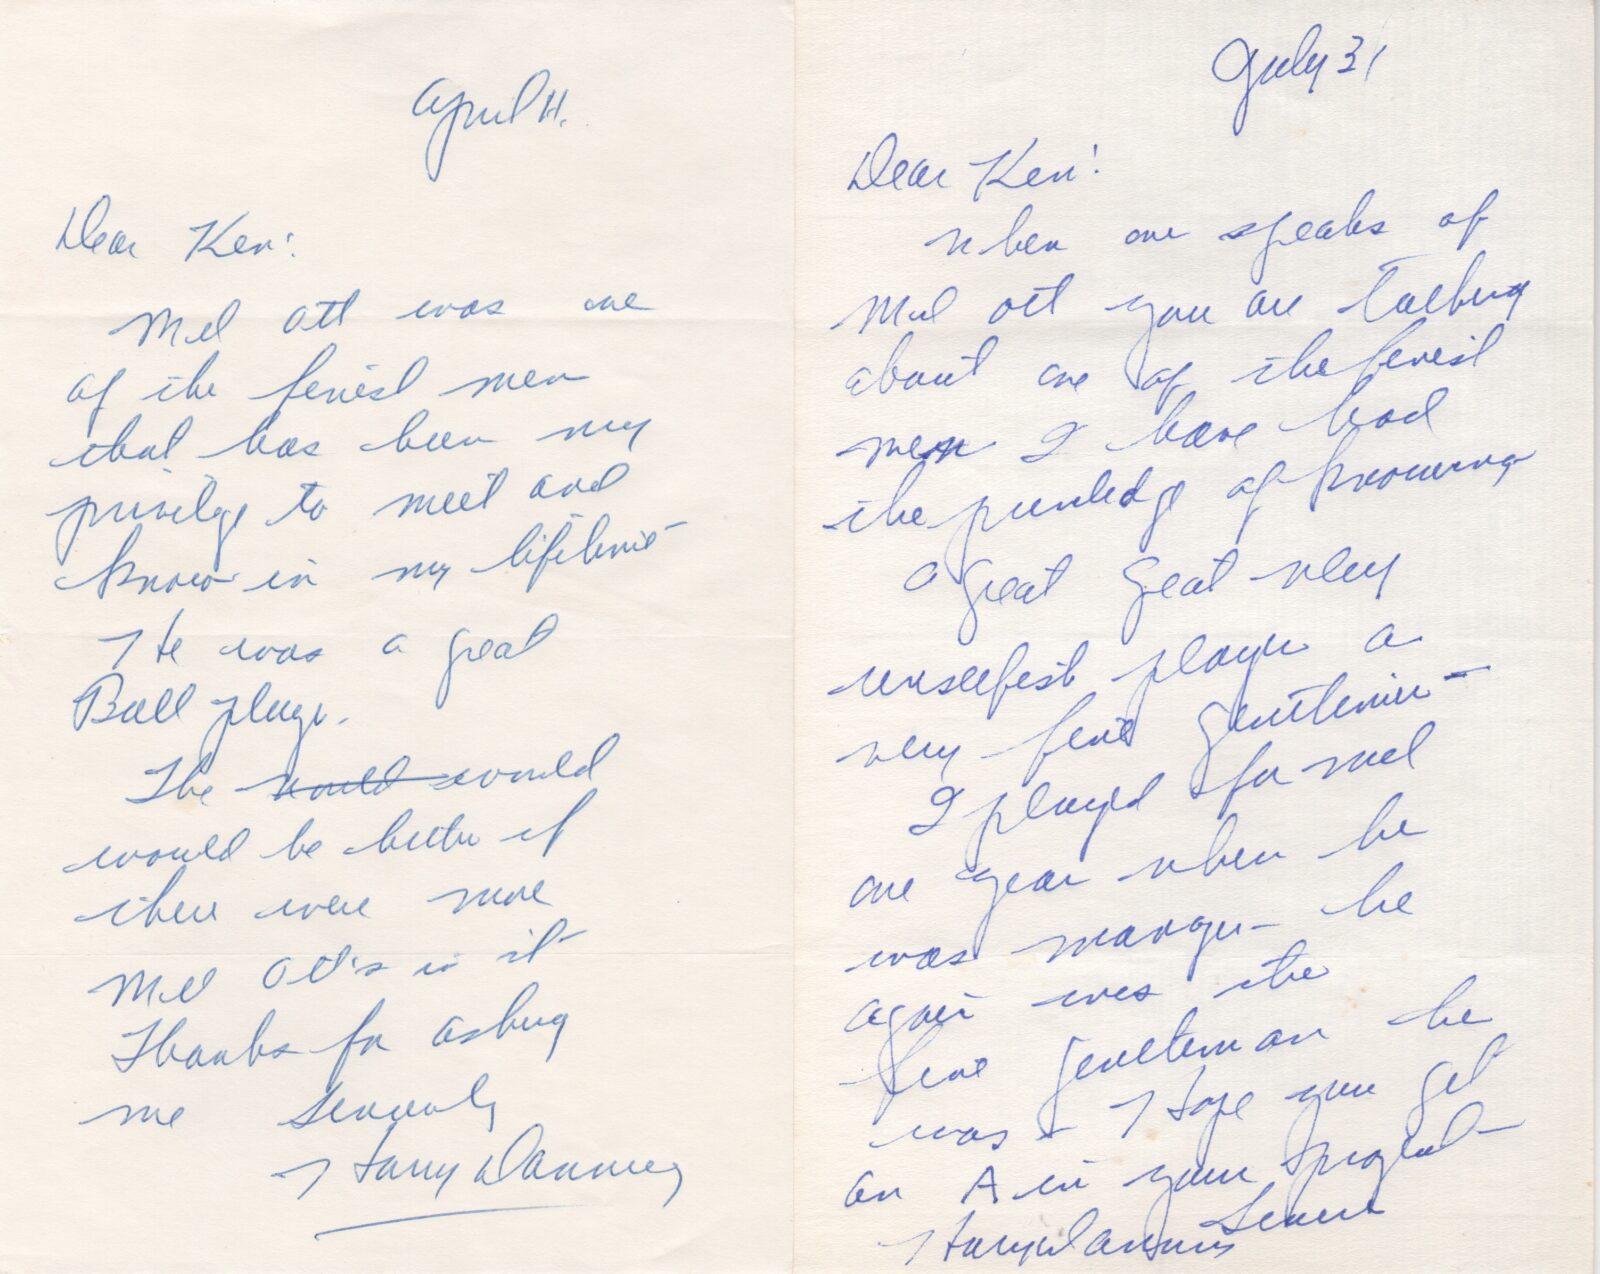 April 11.
Dear Ken:
Mel Ott was one
of the finest men
that has been my
privilge to meet and
know in my lifetime –
He was a great
Ball player.
The would would
would be better if
there were more
Mel Ott's in it –
Thanks for asking
me Sincerely
Harry Danning
July 31
Dear Ken:
When one speaks of
Mel Ott you are talking
about one of the finest
men I have had
the priviledge of knowing
a great great very
unselfish player a
very fine gentleman –
I played for Mel
one year when he
was manager – he
again was the
fine gentleman he
was – Hope you get
an A in your project –
Sincere
Harry Danning